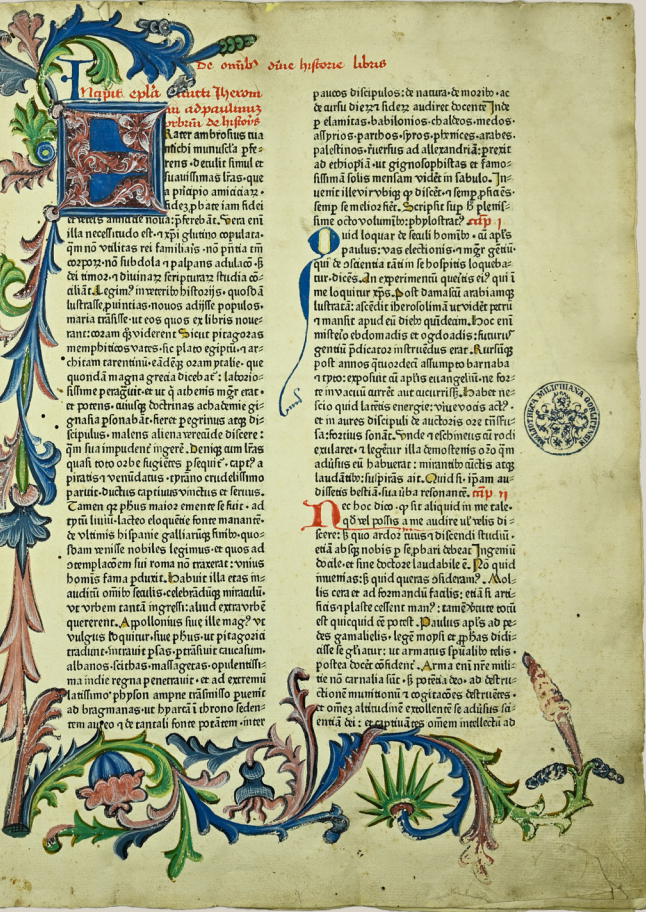 De omĩbꝰ diuine historie libris
Incipit epl̃a sancti Iheronimi
ad paulinum
p̃sbr̃um de
Frater ambrosius tua
michi munuscl̃a pfe-
rens·detulit simul et
suauissimas l̃ras·que
a pricipio amiciciar᷒·
fidez pbate iam fidei
et veteris amicicie noua: p̃ferebãt. Vera eni᷒
illa necessitudo est·⁊ xp̃i glutino copulata·
qm̃ nõ vtilitas rei familiaris·nõ pñtia tm̃
corpoꝝ·nõ subdola ⁊ palpans adulacõ·ſꝫ
dei timor·⁊ diuinaꝝ scripturaꝝ studia cõ-
ciliãt. Legim᷒ in veterib᷒ historijs·quosdã
lustrasse puintias·nouos adijsse populos·
maria trãsisse·ut eos quos ex libris noue-
rant: coram qͦꝫ viderent Sicut pitagoras
memphiticos vates·sic plato egiptũ·⁊ ar-
chitam tarentinũ·eãdẽqꝫ oram ytalie·que
quondã magna grecia dicebat᷒: laborio-
sissime peragiuit·et ut q̃ athenis mg̃r erat·
et potens·cuiusqꝫ doctrinas achademie gi-
gnasia psonabãt·fieret pegrinus atqꝫ di-
scipulus·malens aliena verecũde discere:
qm̃ sua impudent᷒ ingerẽ. Deniqꝫ cum l̃ras
quasi toto orbe fugiẽtes psequit᷒·capt᷒ a
piratis ⁊ venũdatus·tyrãno crudelissimo
paruit·ductus captiuus vinctus et seruus.
Tamen qꝛ phus maior emente se fuit·ad
tytũ liuiũ·lacteo eloquẽtie fonte manantẽ·
de vltimis hispanie galliarũqꝫ finib᷒·quo-
sdam venisse nobiles legimus·et quos ad
ɔtemplacõem sui roma nõ traxerat: vnius
homĩs fama pduxit. Habuit illa etas in-
auditũ omĩb᷒ seculis·celebrãdũqꝫ miraculũ·
vt vrbem tantã ingressi: aliud extra vrbẽ
quererent. Appollonius siue ille mag᷒ vt
vulgus loquitur·siue phus·ut pitagorici
tradunt·intrauit psas·ptrãsiuit caucasum·
albanos·scithas·massagetas·opulentissi-
ma indie regna penetrauit·et ad extremũ
latissimo physon ampne trãsmisso puenit
ad bragmanas·ut hyarcã ĩ throno seden-
tem aureo ⁊ de tantali fonte potãtem·inter
paucos discipulos: de natura·de morib᷒·ac
de cursu dieꝝ ⁊ sideꝝ audiret docentẽ Inde
p elamitas·babilonios·chaldeos·medos·
assyrios·parthos·syros·phenices·arabes·
palestinos·ꝛuersus ad allexandriã: prexit
ad ethiopiã·ut gignosophistas et famo-
sissimã solis mensam videret in sabulo. In-
uenit ille vir vbiqꝫ qͦ disceret·⁊ semp pficẽs·
semp se melior fieret. Scripsit sup hͦ plenis-
sime octo volumĩb᷒: phylostrat᷒. cap i
Quid loquar de seculi homĩb᷒·cũ apl̃s
paulus: vas electionis·⁊ mg̃r gẽtiũ·
qui de ɔscientia tãti in se hospitis loqueba-
tur·dicẽs. An experimentũ queritis ei᷒ qui ĩ
me loquitur xp̃s. Post damascũ arabiamqꝫ
lustratã: ascẽdit iherosolimã ut videret petrũ
⁊ mansit apud eũ dieb᷒ quĩdecim. Hoc eni᷒
misterio ebdomadis et ogdoadis: futurus
gentiũ p̃dicator instruẽdus erat. Rursũqꝫ
post annos qͣtuordeci assumpto barnaba
⁊ tyto: exposuit cũ apl̃is euangeliũ·ne for-
te in vacuũ curreret aut cucurrisset. Habet ne-
scio quid latẽtis energie: viue vocis act᷒·
et in aures discipuli de auctoris ore trãsfu-
sa: fortius sonat. Vnde ⁊ eschineus cũ rodi
exularet·⁊ legeret᷒ illa demostenis oro qm̃
adũsus eũ habuerat: mirantib᷒ cũctis atqꝫ
laudãtib᷒: suspirãs ait. Quid si ip̃am au-
dissetis bestiã·sua ũba resonantẽ. cap ii
Nec hoc dico·qͥ sit aliquid in me tale·
qͦd vel possis a me audire ul̃ velis di-
scere: ſꝫ quo ardor tuus ⁊ discendi studiũ·
etiã absqꝫ nobis p se pbari debeat Ingeniũ
docile·et sine doctore laudabile ẽ. Nõ quid
inuenias: ſꝫ quid queras ɔsideram᷒. Mol-
lis cera et ad formandũ facilis: etiã si arti-
ficis ⁊ plaste cessent man᷒: tamẽ virtute totũ
est quicquid eẽ potest. Paulus apl̃s ad pe-
des gamalielis·legẽ moysi et p̃phas didi-
cisse se gl̃iatur: ut armatus spũalib᷒ telis·
postea doceret cõfident᷒. Arma eni᷒ nr̃e mili-
tie nõ carnalia sũt·ſꝫ potẽtia deo·ad destru-
ctionẽ munitionũ ⁊ cogitacões destruẽtes·
et omeꝫ altitudinẽ extollentẽ se adũsus sci-
entiã dei: et captiuãtes omẽm intellectũ ad
BIBLIOTHECA MILICHIANA GORLICENSIS